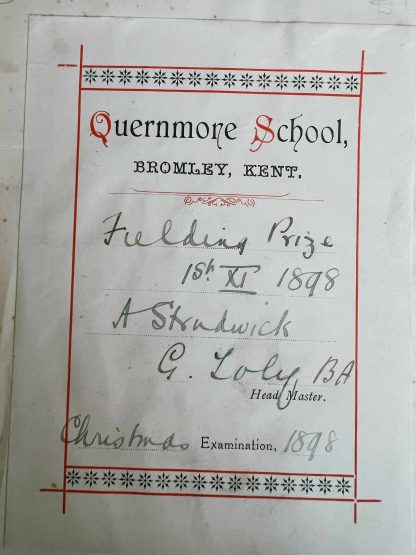 Quernmore School,
BROMLEY, KENT.
Fielding Prize
1st XI 1898
A Strudwick
G. Loly BA
Head Master.
Christmas Examination, 1898